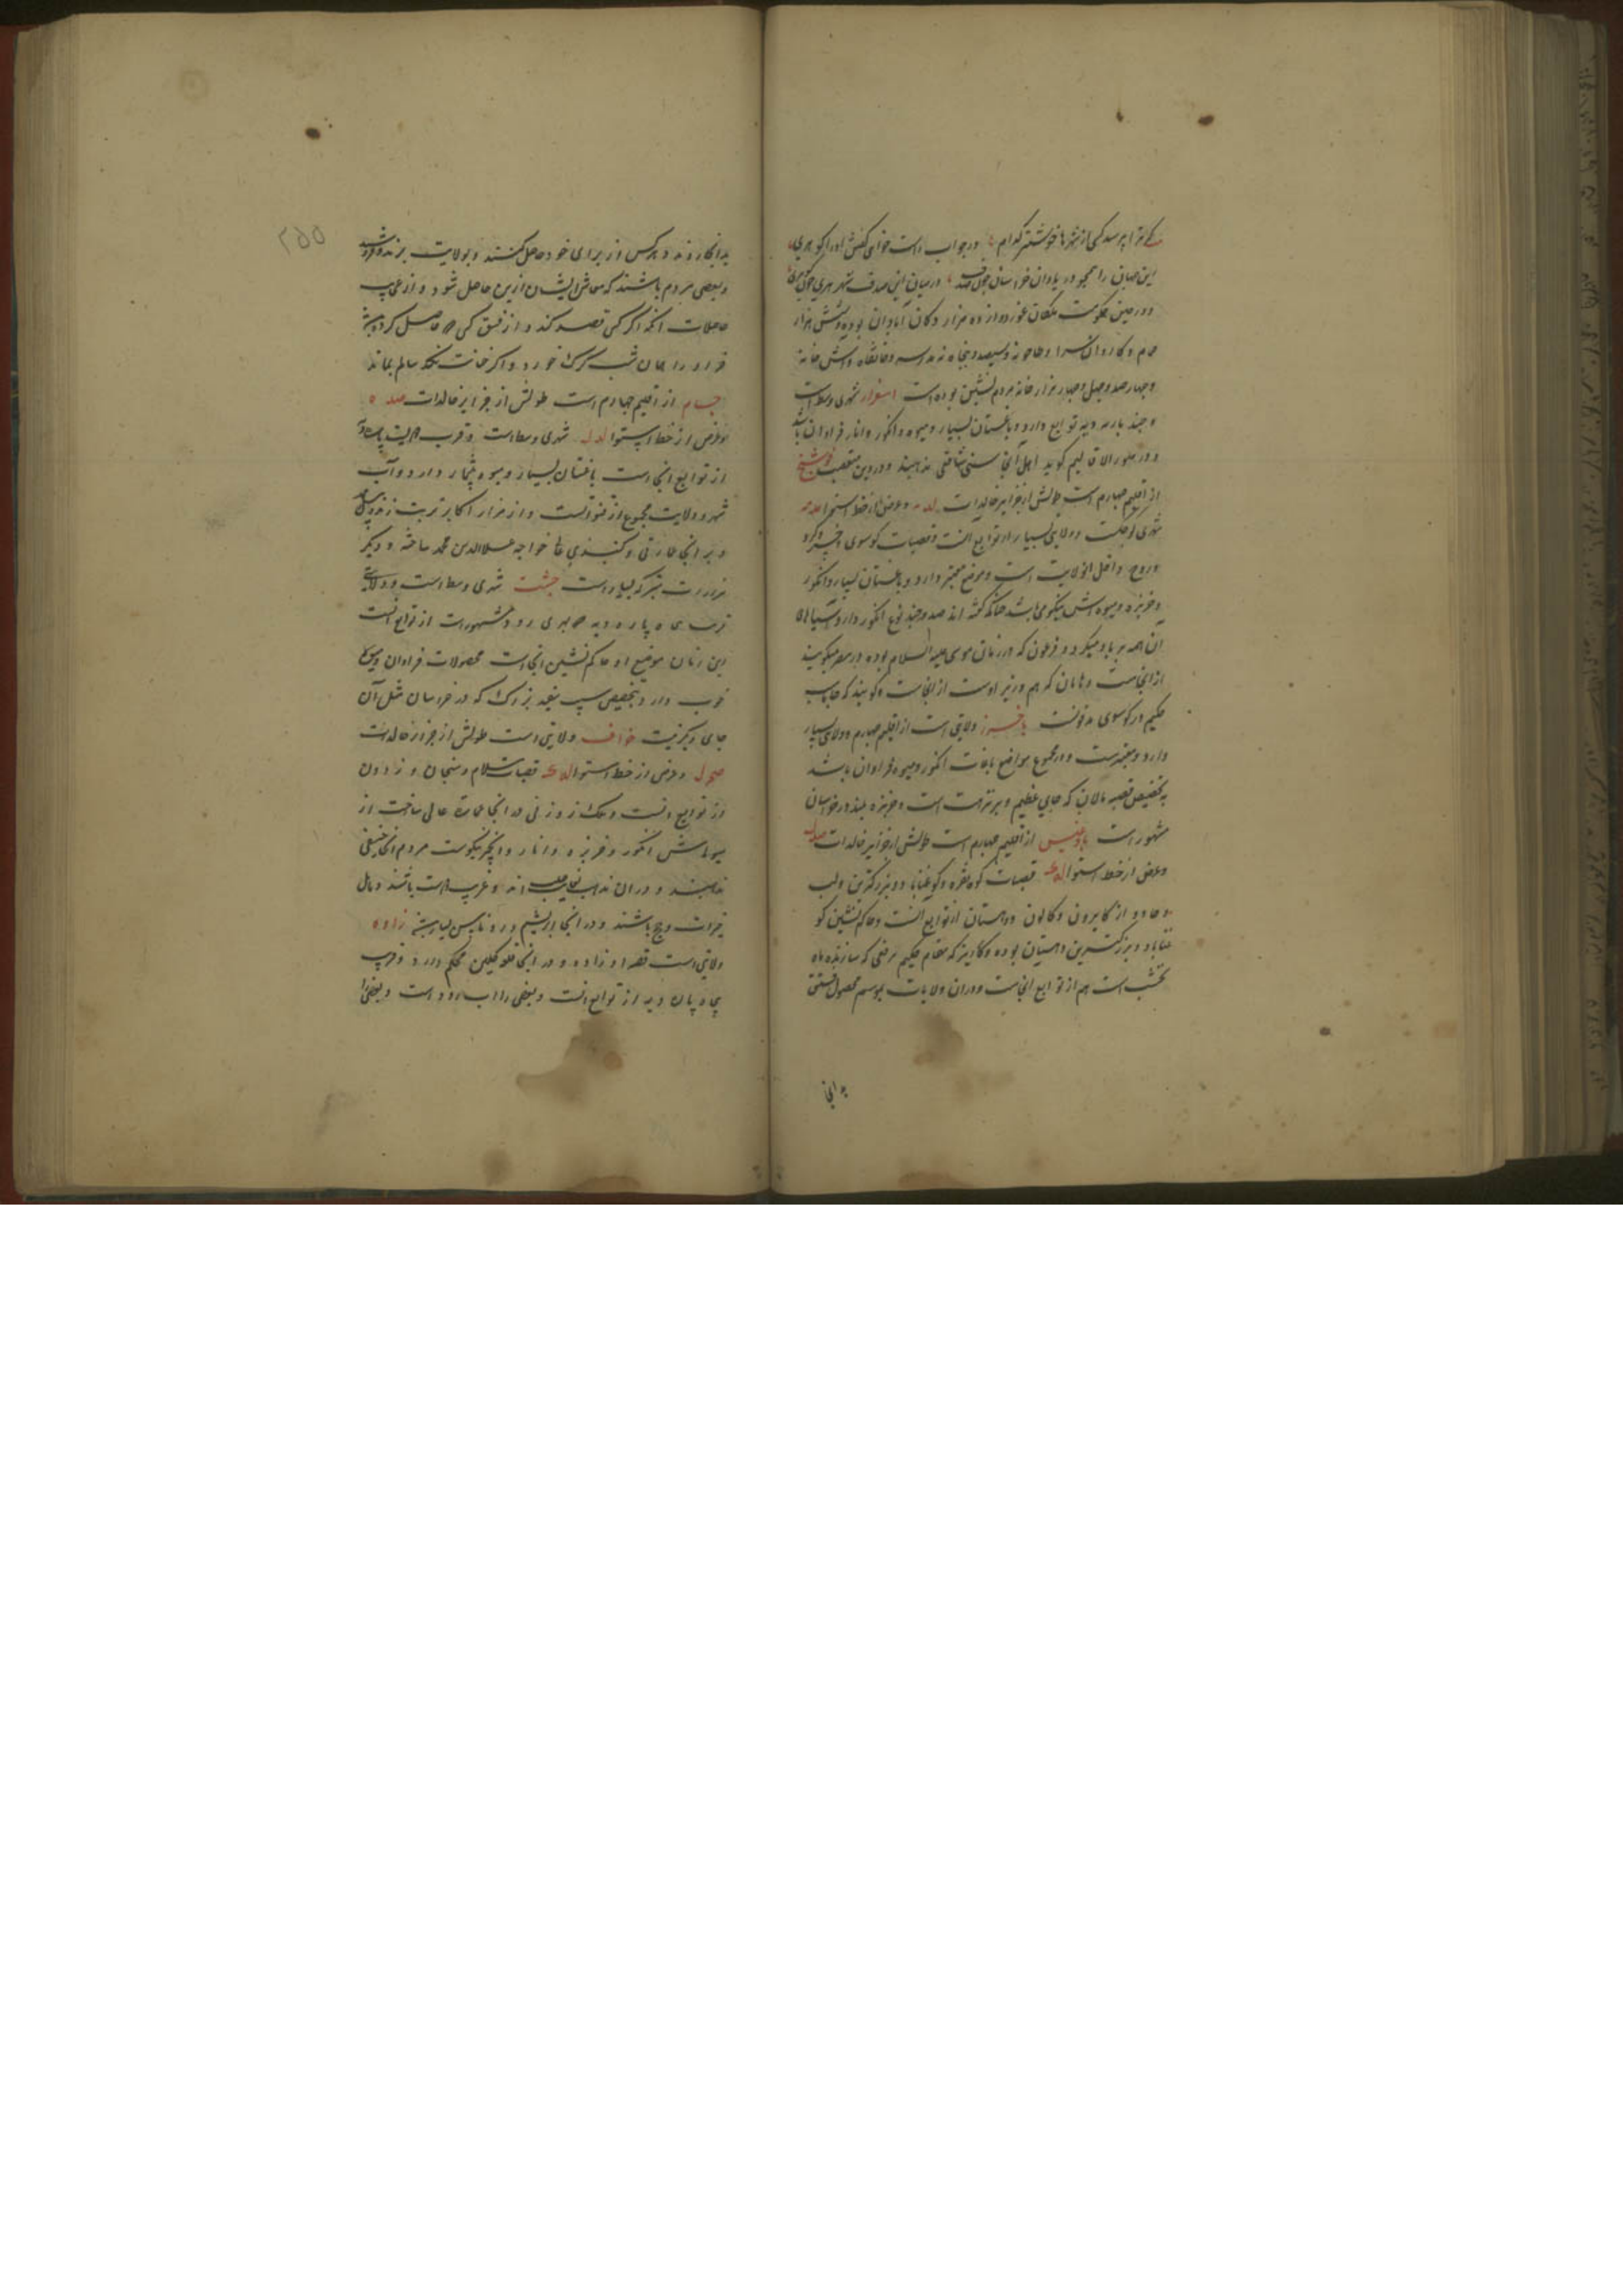 کر ترا پرسد کسی از شهرها خوشتر کدام در جواب ار راست خواهی گفتن او را گو هری
این جهان را همچو دریا دان خراسان چون صدف در میان این صدف شهر هری چون گوهری
و در حین حکومت ملکان غور دوازده هزار دکان آبادان بوده و شش هزار
حمام و کاروانسرا و طاحونه و سیصد و پنجاه و نه مدرسه و خانقاه و آتش خانه
و چهارصد و چهل و چهار هزار خانه مردم نشین بوده است اسفزار شهری وسط است
و چند پاره دیه توابع دارد و باغستان بسیار و میوه و انگور و انار فراوان باشد
و در صور الاقالیم گوید اهل آنجا سنی شافعی مذهبند و در دین متعصب فوشنج
از اقلیم چهارم است طولش از جزایر خالدات و عرض از خط استوا
شهری کوچکست و ولایتی بسیار از توابع آنست و قصبات کوسوی و خسروگرد
و روح داخل آن ولایت است و موضع معتبر دارد و باغستان بسیار و انگور
و خربزه و میوه اش نیکو می باشد چنانکه گفته اند صد و چند نوع انگور دارد و آسیاهای
آن همه بر باد میگردد و فرعون که در زمان موسی علیه السلام بوده در مصر میگویند
از آنجاست و هامان که هم وزیر اوست از آنجاست و گویند که جاماسب
حکیم در کوسوی مدفونست باخرز ولایتی است از اقلیم چهارم و ولایتی بسیار
دارد و معتبرست و در مجموع مواضع باغات انگور و میوه فراوان باشد
به تخصیص قصبه مالان که جایی عظیم و پر نزهت است و خربزه بلند در خراسان
مشهور است بادغیس از اقلیم چهارم است طولش از جزایر خالدات
و عرض از خط استوا قصبات کوه نقره و کوه غناباد و بزرگترین و لب
و جاودو از کابرون و کالون و دهستان از توابع آنست و حاکم نشین کو
غناباد و بزرگترین دهستان بوده و کاریزکه مقام حکیم برقعی که سازنده ماه
نخشب است هم از توابع آنجاست و در آن ولایات بموسم محصول فستق
بدانجا
۲۵۵
بدانجا روند و هر کس از برای خود حاصل کنند و بولایت برند و فروشند
و بعضی مردم باشند که معاش ایشان ازین حاصل شود و از عجایب
حالات آنکه اگر کسی قصد کند و از فستق کسی که حاصل کرده
خر او را همان شب گرگ خورد و اگر خیانت نکند سالم بماند
جام از اقلیم چهارم است طولش از جزایر خالدات
و عرض از خط استوا شهری وسط است و قرب دویست پاره دیه
از توابع آنجاست باغستان بسیار و میوه بیشمار دارد و آب
شهر و ولایت مجموع از قنواتست و از مزار اکابر تربت زنده پیل
و بر آنجا عمارتی و گنبدی عالی خواجه علاالدین محمد ساخته و دیگر
مزارات متبرکه بسیار است چشت شهری وسط است و ولایتی
قرب پنجاه پاره دیه و هری رود مشهور است از توابع آنست
این زمان موضع او حاکم نشین آنجاست محصولات فراوان و میوهای
خوب دارد و بتخصیص سیب سفید بزرگ که در خراسان مثل آن
جای دیگر نیست خواف ولایتی است طولش از جزایر خالدات
و عرض از خط استوا قصبات سلام و سنجان و زوزن
از توابع آنست و ملک زوزنی در آنجا عمارة عالی ساخت از
میوهایش انگور و خربزه و انار و انجیر نیکوست مردم آنجا حنفی
مذهبند و در آن مذهب بغایت صلب اند و غریب دوست باشند و مایل
خیرات و حج باشند و در آنجا ابریشم و روناس بسیارست زاوه
ولایتی است قصبه او زاوه و در آنجا قلعه گلین محکم دارد و قرب
پنجاه پاره دیه از توابع آنست و بعضی را آب رود است و بعضی را